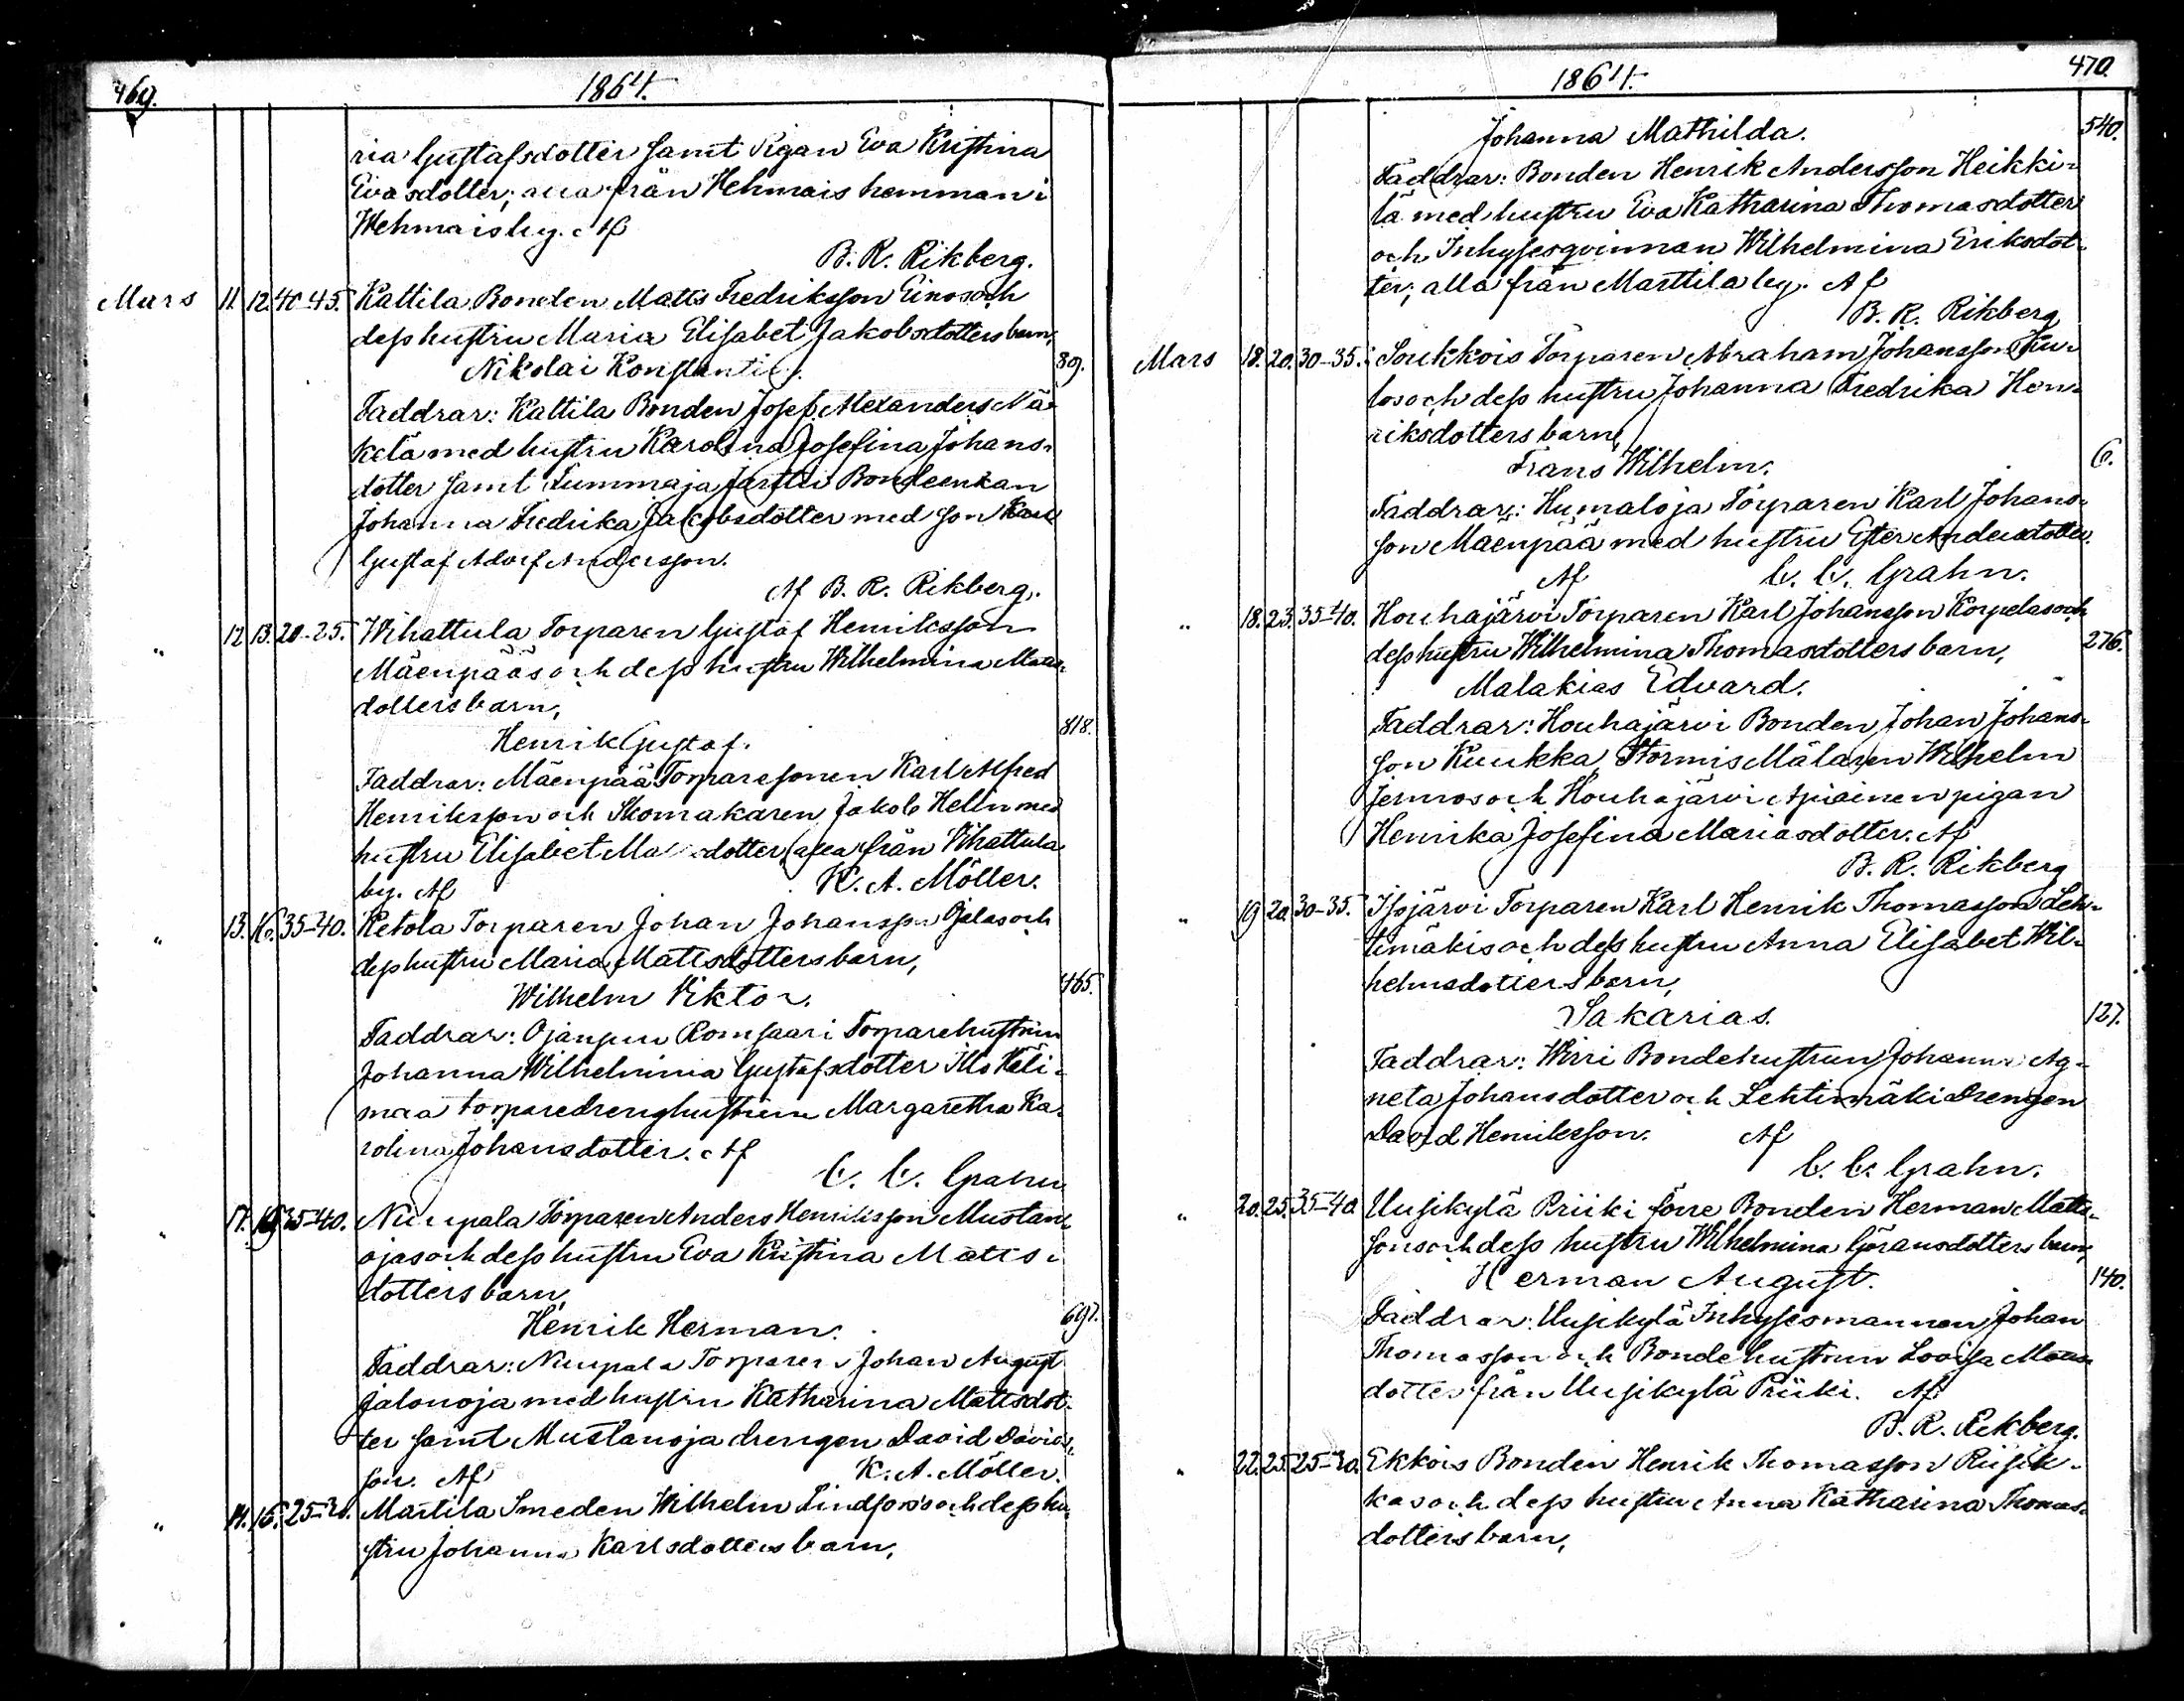 469.
1864.
ria Gustafsdotter samt Pigan Eva Kristina
Evasdotter; alla från Wehmais hemman i
Wehmais by. Af
B. R. Rikberg.
Mars 11. 12. 40-45. Kattila Bonden Matts Fredriksson Einos och
dess hustru Maria Elisabet Jakobsdotters barn,
Nikolai Konstantin. 89.
Faddrar: Kattila Bonden Josef Alexanders Nä-
kelä med hustru Karolina Josefina Johans-
dotter samt Bondeenkan
Johanna Fredrika Jakobsdotter med son Karl
Gustaf Adolf Andersson.
Af B. R. Rikberg.
" 12 13. 20-25. Wihattula Torparen Gustaf Henriksson
Mäenpääs och dess hustru Wilhelmina
dotters barn,
Henrik Gustaf. 818.
Faddrar: Mäenpää Torparesonen Karl Alfred
Henriksson och Skomakaren Jakob Helin med
hustru Elisabet dotter alla från Wihattula
by. Af K. A. Möller.
" 13. 16. 35-40. Retola Torparen Johan Johansson Ojalas och
dess hustru Maria Mattsdotters barn,
Wilhelm Viktor. 465.
Faddrar: Ojansuu Torparehustrun
Johanna Wilhelmina Gustafsdotter Illo Wäli-
maa torparedrenghustrun Margaretha Ka-
rolina Johansdotter. Af
C. C. Grahn
" 17. 19 35-40. Nuupala Torparen Anders Henriksson Mustan-
ojas och dess hustru Eva Kristina Matts-
dotters barn,
Henrik Herman. 697.
Faddrar: Nuupala Torparen Johan August
Jalonoja med hustru Katharina Mattsdot-
ter samt Mustanoja drengen David Davids-
son. Af K. A. Möller.
" 14. 15. 25-30. Marttila Smeden Wilhelm Lindfors's och dess hu-
stru Johanna Karlsdotters barn,
1864.
470.
Johanna Mathilda. 540.
Faddrar: Bonden Henrik Andersson Heikki-
lä med hustru Eva Katharina Thomasdotter
och Inhysesqvinnan Wilhelmina Eriksdot-
ter; alla från Marttila by. Af
B. R. Rikberg
Mars 18. 20. 30-35. Soukkois Torparen Abraham Johansson Ku-
los och dess hustru Johanna Fredrika Hen-
riksdotters barn,
Frans Wilhelm. 6.
Faddrar: Humaloja Torparen Karl Johans-
son Mäenpää med hustru Ester Andersdotter.
Af C. C. Grahn.
" 18. 23. 35-40. Houhajärvi Torparen Karl Johansson Korpelas och
dess hustru Wilhelmina Thomasdotters barn, 276.
Malakias Edvard.
Faddrar: Houhajärvi Bonden Johan Johans-
son Kuukka, Stormis Målaren Wilhelm
Jernros och Houhajärvi Apiainen pigan
Henrika Josefina Mariasdotter. Af
B. R. Rikberg
" 19 20. 30-35. Isojärvi Torparen Karl Henrik Thomasson Leh-
timäkis och dess hustru Anna Elisabet Wil-
helmsdotters barn,
Sakarias. 127.
Faddrar: Wirri Bondehustrun Johanna Ag-
neta Johansdotter och Lehtimäki Drengen
David Henriksson. Af
C. C. Grahn.
" 20. 25. 35-40 Uusikylä Priiki förre Bonden Herman Matts-
sons och dess hustru Wilhelmina Göransdotters barn,
Herman August. 140.
Faddrar: Uusikylä Inhysesmannen Johan
Thomasson och Bondehustrun Lovisa
dotter från Uusikylä Priiki. Af
B. R. Rikberg.
" 22. 25. 25-30. Ekkois Bonden Henrik Thomasson Riisik-
kas och dess hustru Anna Katharina Thomas-
dotters barn,